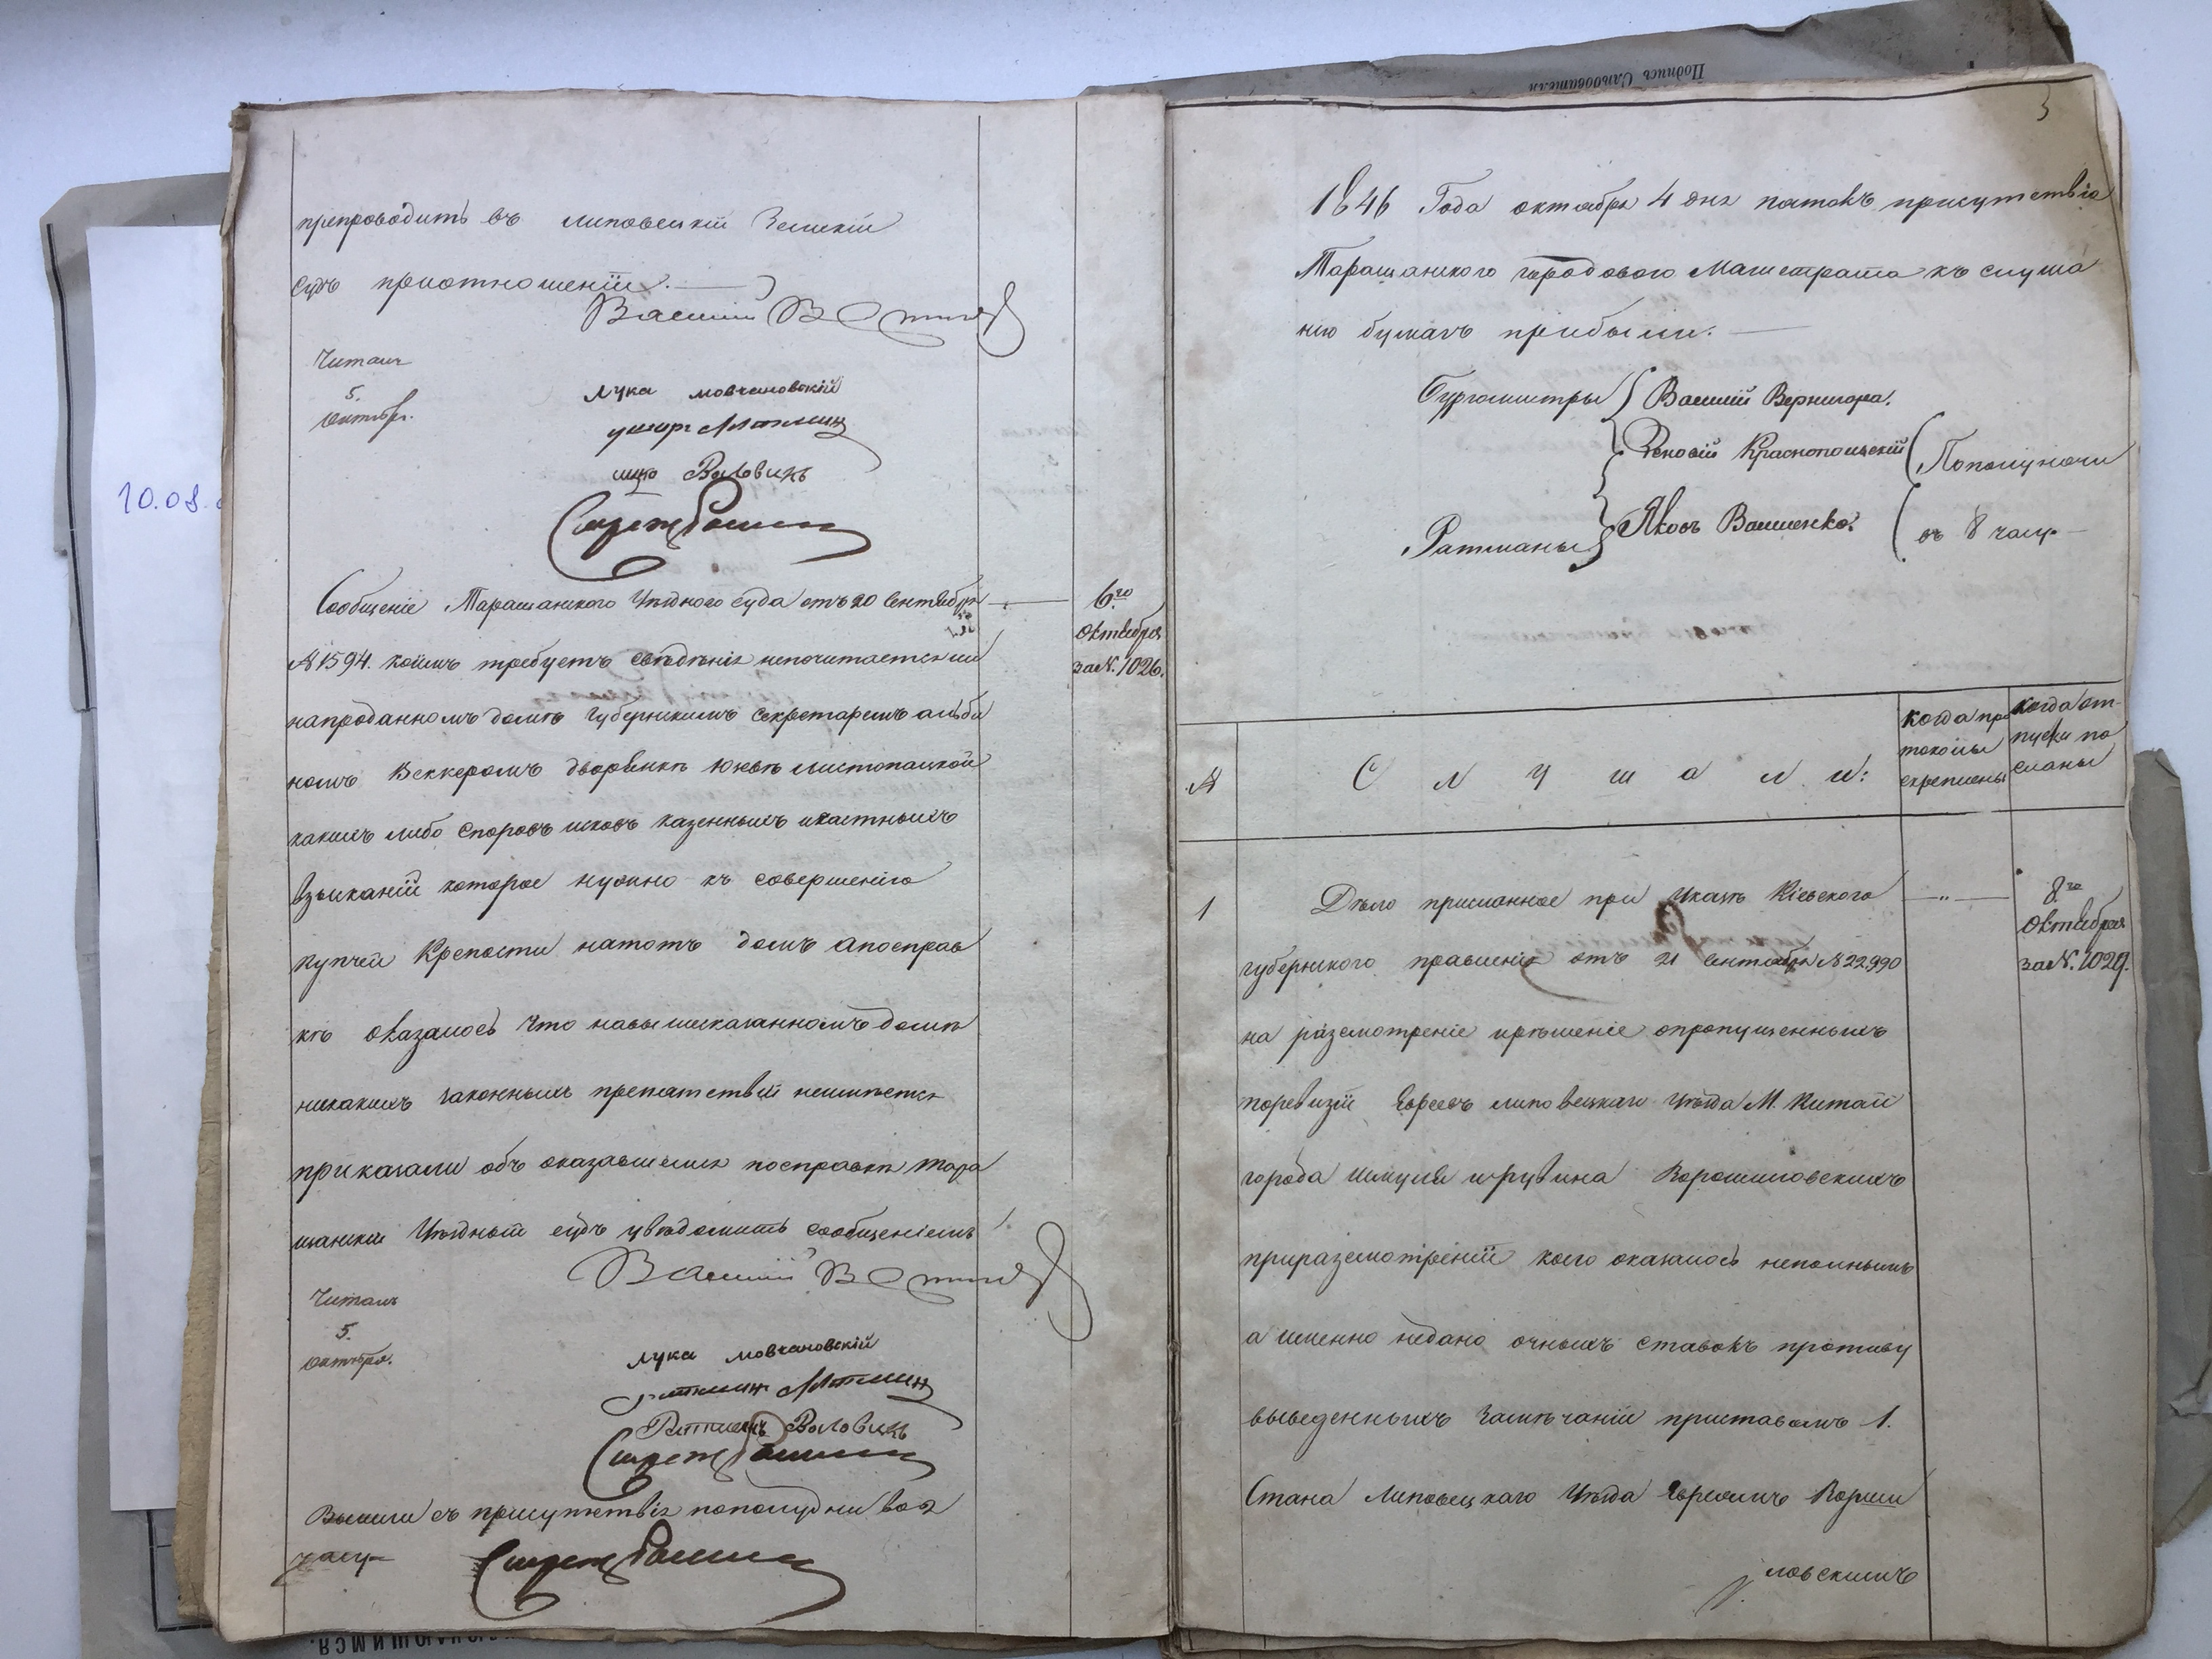 препроводить въ Липовецкій Земскій
Судъ приотношеніи.
Василій
Читалъ
5.
октября.
Лука Мовчановскій
Воловикъ
Сообщеніе Таращанского Уѣздного Суда отъ 20 Сентября
№ 1594. коимъ требуетъ свѣдѣнія непочитается ли
напроданномъ домѣ Губернскимъ Секретаремъ
номъ Беккеромъ дворянкѣ Юзефѣ Листопацкой
какихъ либо споровъ исковъ казенныхъ ичастныхъ
взысканій которое нужно къ совершенію
купчей Крепости натотъ домъ апосправ
кѣ оказалось что навышесказанномъ домѣ
никакихъ законныхъ препятствій неимѣется
приказали объ оказавшемся посправкѣ Тара
щанскій Уѣздный судъ увѣдомить сообщеніемъ
Василій
Читалъ
5.
октября.
Лука Мовчановскій
Ратманъ Воловикъ
Вышли съ присутствія пополудни во 2
часу
6го
Октября
за № 1026.
3
1846 Года октября 4 дня въ присутствіе
Таращанского городового Магистрата къ слуша
нію бумагъ прибыли:
Бургомистры Василій Вернигора.
Зеновій Краснопольскій
Пополуночи
Ратманы Яковъ Василенко.
въ 8 часу
№
С л у ш а л и:
когда про
токолы
скреплены
когда от
пуски по
сланы
1
Дѣло присланное при Указѣ Кіевского
губернского правленія отъ 21 Сентября № 22,990
на разсмотреніе ирѣшеніе опропущенныхъ
поревизіи Евреевъ Липовецкаго Уѣзда М. Китай
города Шмуля иРувина Ворошиловскихъ
приразсмотреніи коего оказалось неполнымъ
а именно недано очныхъ ставокъ противу
выведенныхъ замѣчаній приставомъ 1.
Стана Липовецкаго Уѣзда Евреямъ Вороши
ловскимъ
8го
Октября
за № 1029.
10.08.
Подпись Следователя